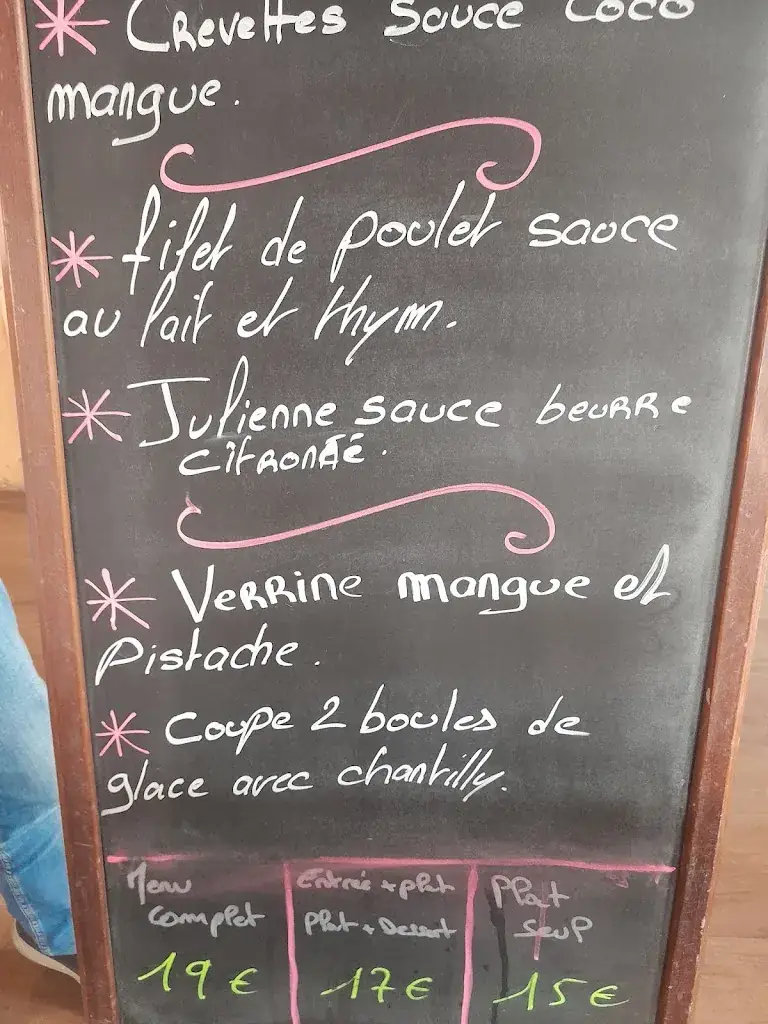 * Crevettes sauce coco
mangue.
* filet de poulet sauce
au lait et thym.
* Julienne sauce beurre
citronné.
* Verrine mangue et
Pistache.
* Coupe 2 boules de
glace avec chantilly.
Menu
complet
19€
Entrée + plat
Plat + Dessert
17€
Plat
seul
15€